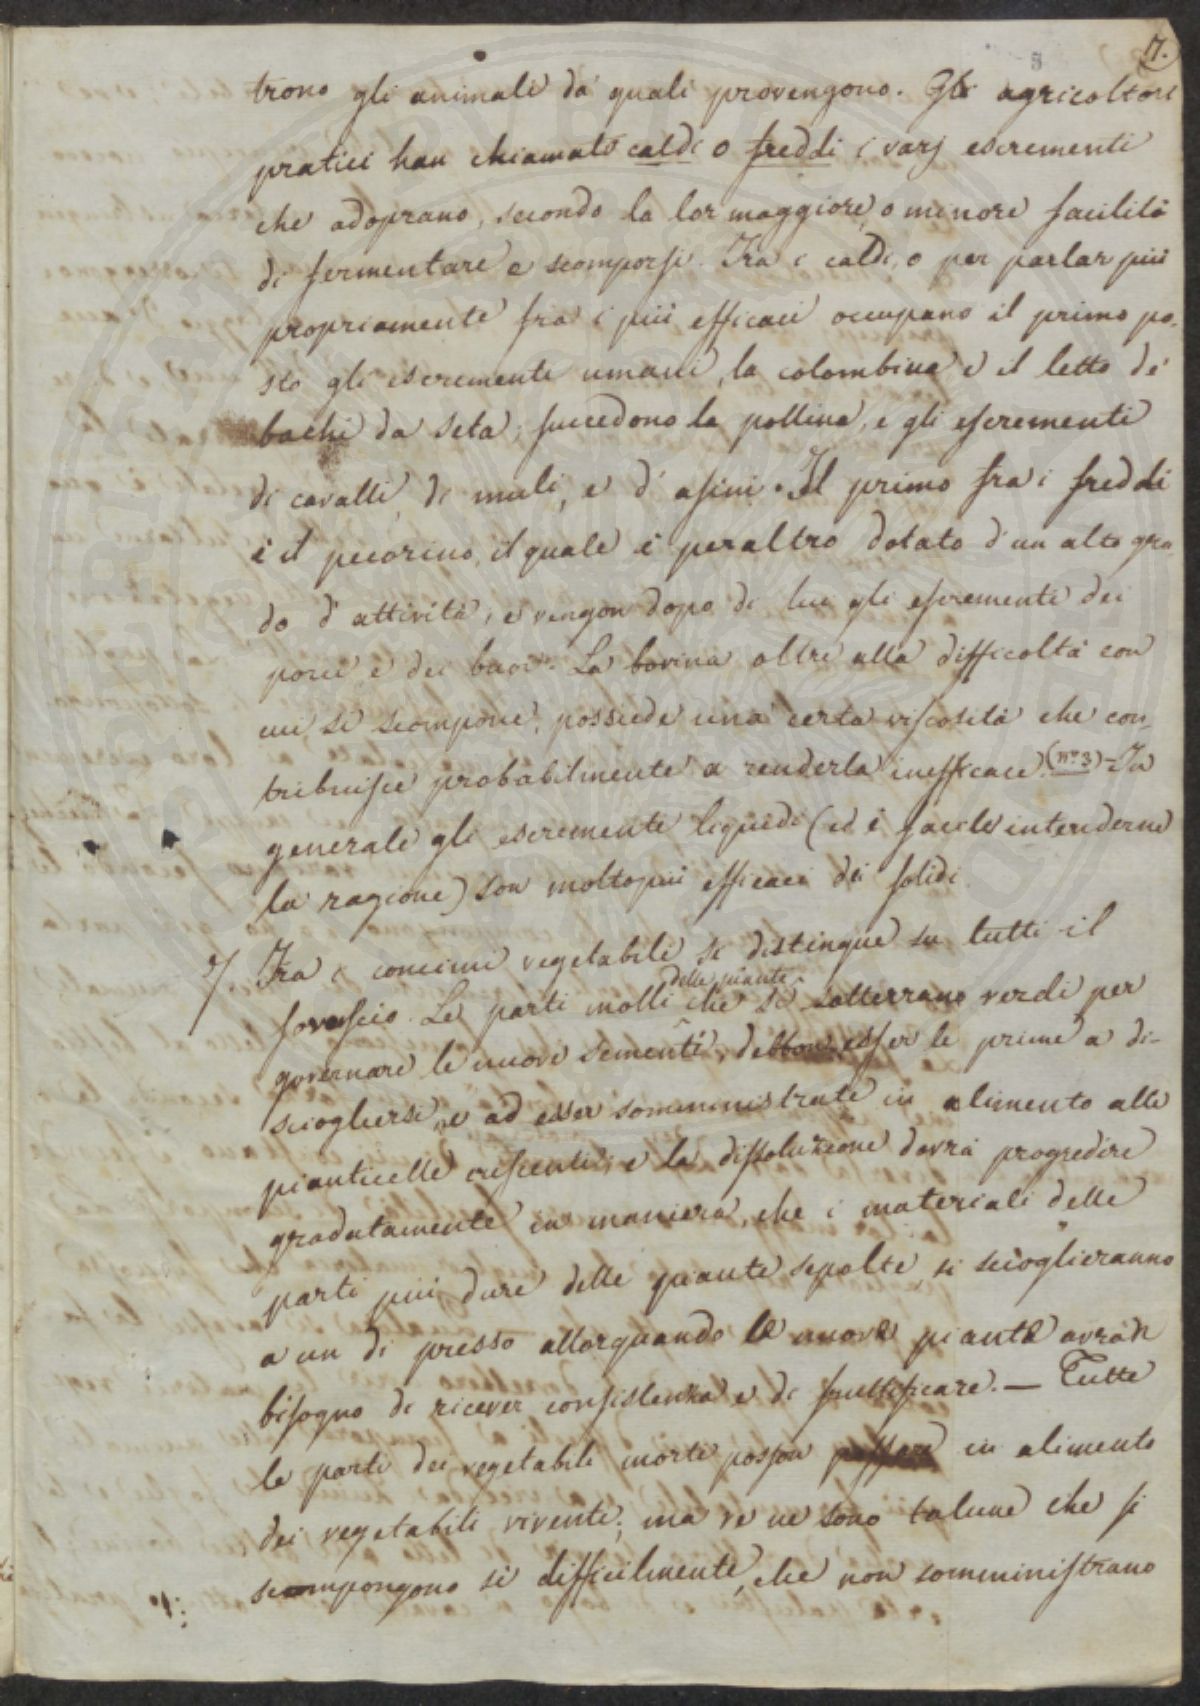 17.
trono gli animali da' quali provengono. Gli agricoltori
pratici han chiamato caldi o freddi i varj escrementi
che adoprano, secondo la lor maggiore, o minore facilità
di fermentare e scomporsi. Fra i caldi, o per parlar più
propriamente fra i più efficaci occupano il primo po-
sto gli escrementi umani, la colombina e il letto de'
bachi da seta; succedono la pollina, e gli escrementi
di cavalli, di muli, e d'asini. Il primo fra i freddi
è il pecorino, il quale è peraltro dotato d'un alto gra-
do d'attività, e vengon dopo di lui gli escrementi dei
porci e dei buoi. La bovina oltre alla difficoltà con
cui si scompone, possiede una certa viscosità che con-
tribuisce probabilmente a renderla inefficace. (n.° 3) - In
generale gli escrementi liquidi (ed è facile intenderne
la ragione) son molto più efficaci dei solidi.
7. Fra i concimi vegetabili si distingue su tutti il
sovescio. Le parti molli delle piante che si sotterrano verdi per
governare le nuove sementi, debbon esser le prime a di-
sciogliersi, e ad esser somministrate in alimento alle
pianticelle crescenti; e la dissoluzione dovrà progredire
gradatamente in maniera, che i materiali delle
parti più dure delle piante sepolte, si scioglieranno
a un di presso allorquando le nuove piante avran
bisogno di ricever consistenza e di fruttificare. — Tutte
le parti dei vegetabili morti posson passare in alimento
dei vegetabili viventi; ma ve ne sono talune che si
scompongono sì difficilmente, che non somministrano